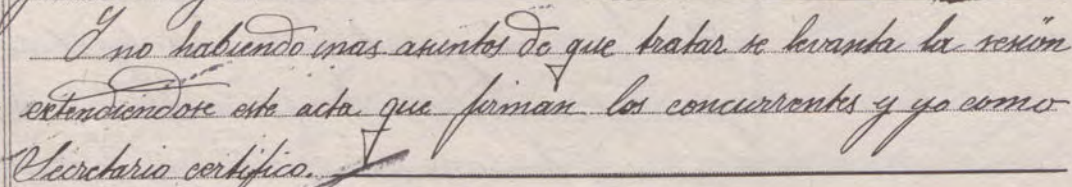 Y no habiendo mas asuntos de que tratar se levanta la sesión
extendiendose este acta que firman los concurrentes y yo como
Secretario certifico.